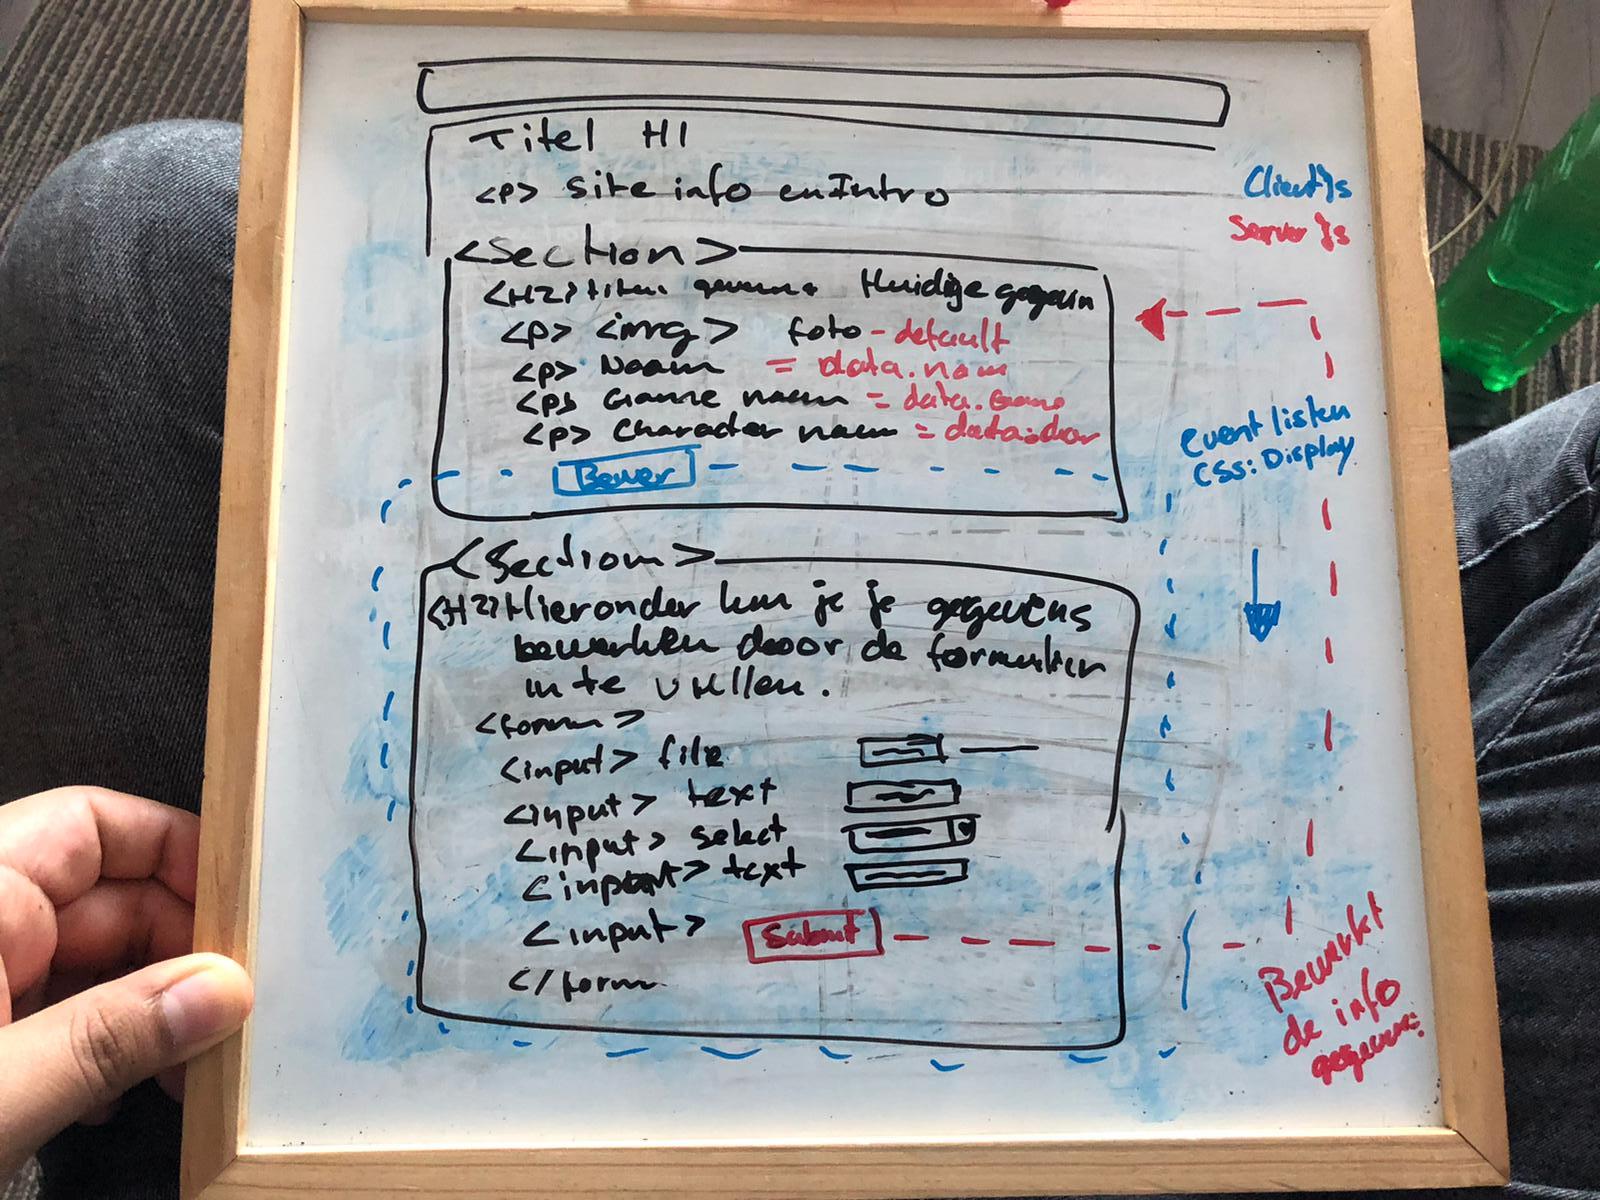 Titel H1
<p> site info en Intro
Client Js
Server Js
<Section>
<H2> Huidige
<p> <img> foto - default
<p> Naam = data.nam
<p> Game naam = data.Game
<p> Character naam = data.char
Eventlisten
CSS: Display
<Section>
<H2> Hieronder kun je je gegevens
bewerken door de formulier
in te vullen.
<form>
<input> file
<input> text
<input> select
<input> text
<input> Submit
</form
Bewerkt
de info